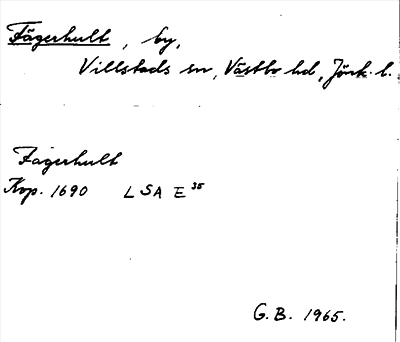 Fägerhult, by,
Villstads sn, Västbo hd, Jönk. l.
Fagerhult
Kop. 1690 LSA E 35
G.B. 1965.